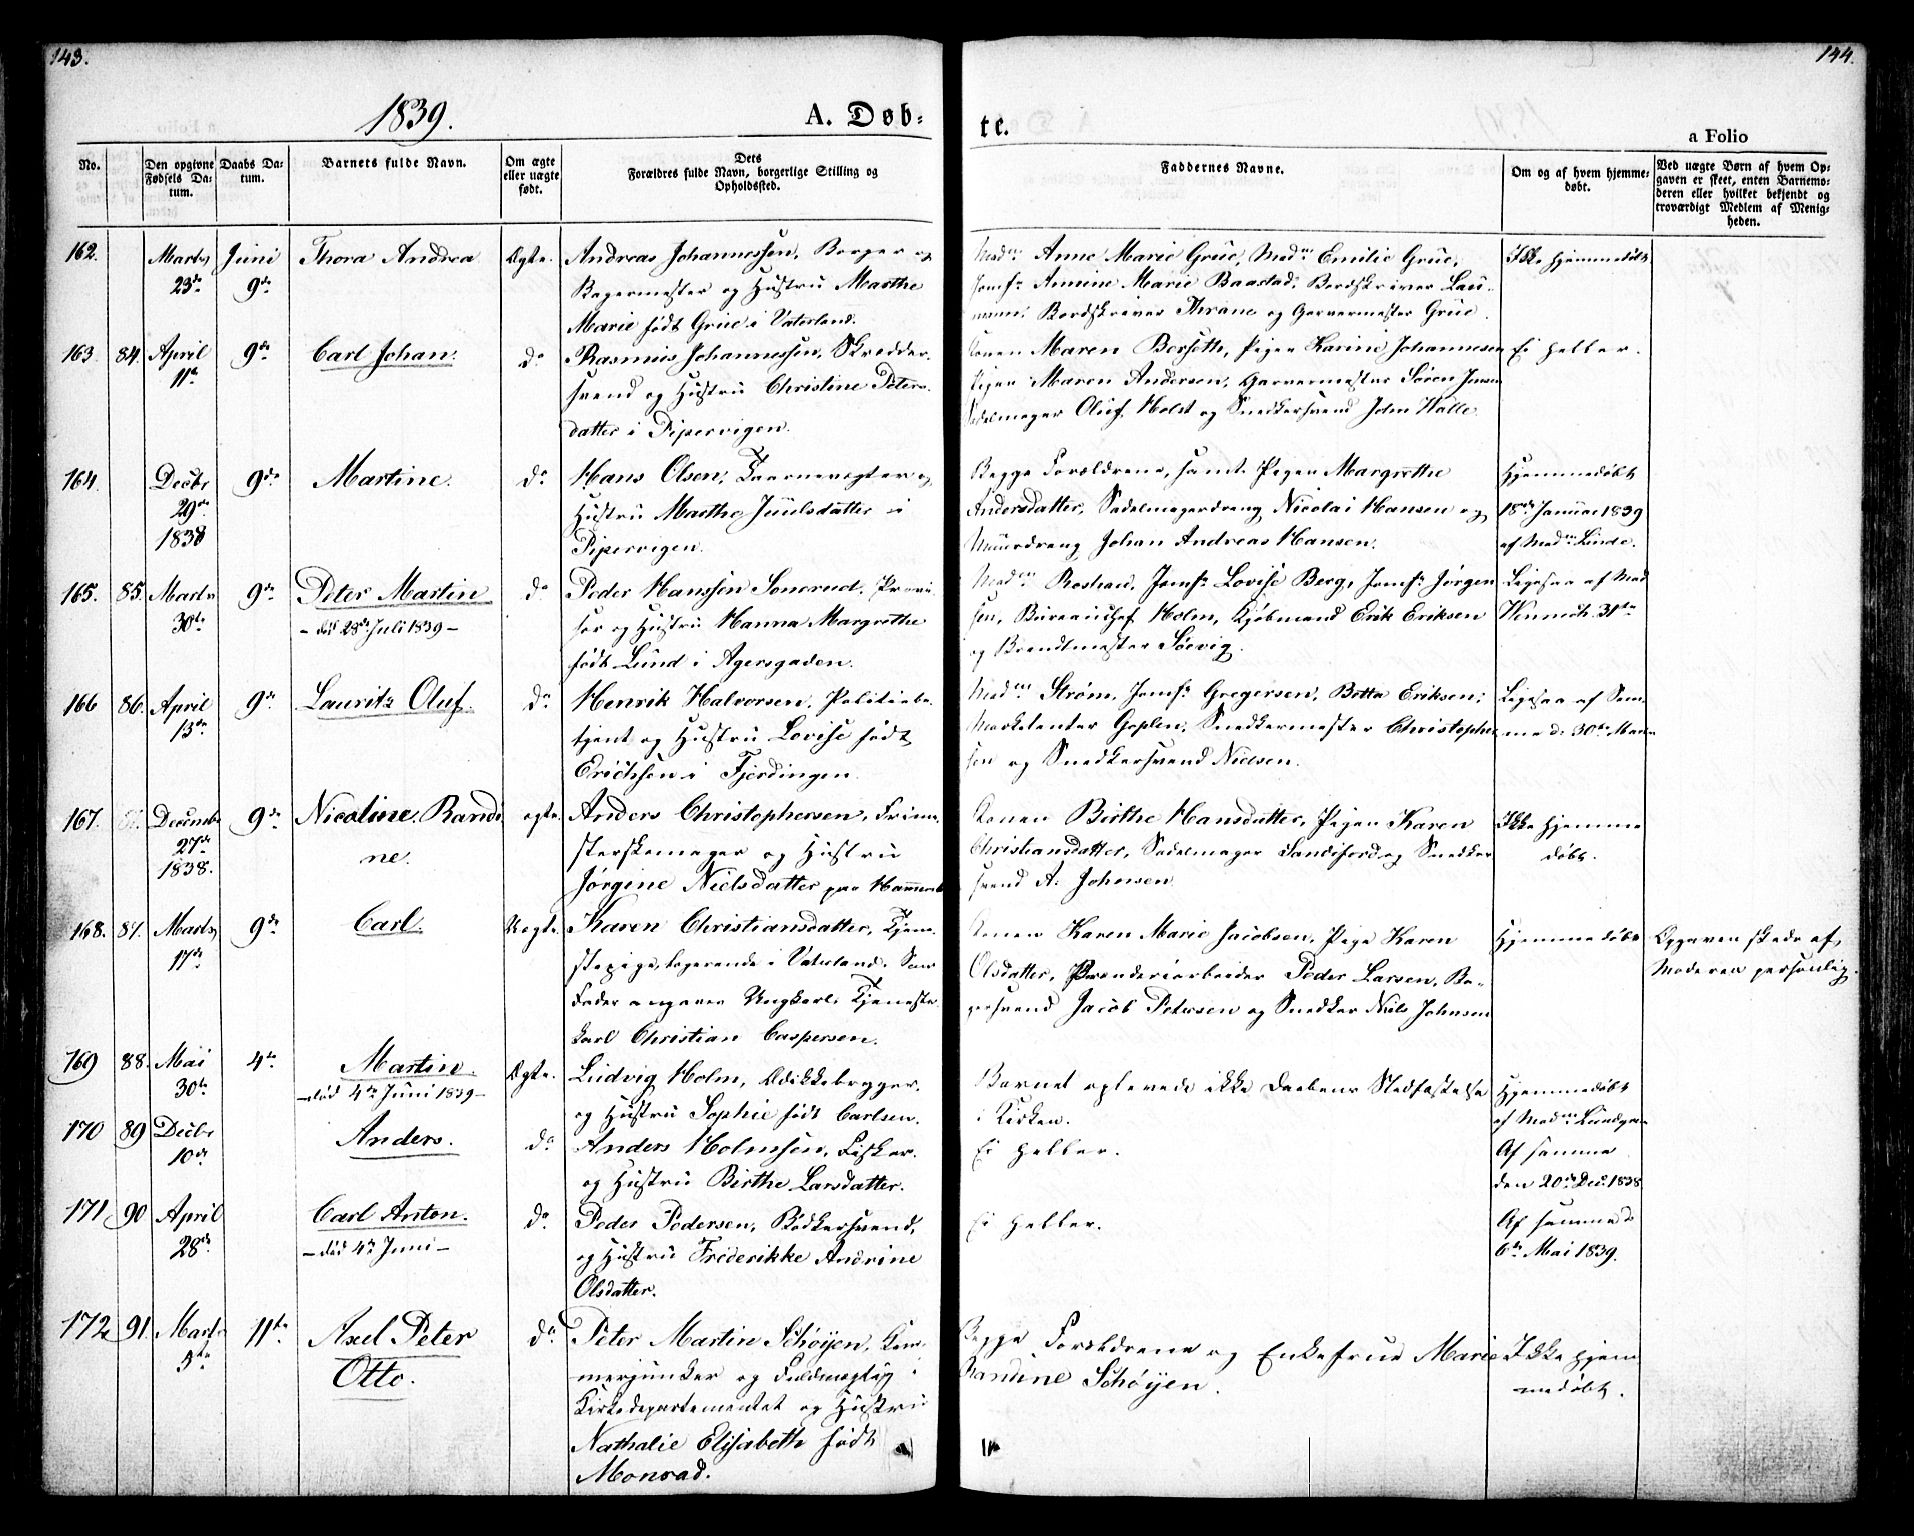 143.
144.
1839.
A. Døb-
te.
a Folio
No.
Den opgivne Fødsels Da-tum.
Daabs Da-tum.
Barnets fulde Navn.
Om ægte eller uægte født.
Dets Forældres fulde Navn, borgerlige Stilling og Opholdssted.
Faddernes Navne.
Om og af hvem hjemme-døbt.
Ved uægte Børn af hvem Op-gaven er skeet, enten Barnemo-deren eller hvilket bekjendt og troværdigt Medlem af Menig-heden.
162. Marts 23de Juni 9de Thora Andrea Ægte.
Andreas Johannessen, Borger og
Bagermester og Hustru Marthe
Marie født Grüe i Vaterland.
Madm Anne Marie Grüe, Madm Emilie Grüe,
Jomfr Annine Marie Baastad, Bordskriver Lau-
mann, Bordskriver Thrane og Garvermester Grüe.
Ikke hjemmedøbt
163. 84. April 11te 9de Carl Johan. do
Rasmus Johannessen, Skrædder-
svend og Hustru Christine Peters-
datter i Pipervigen.
Konen Maren Berseth, Pigen Karine Johannesen
Pigen Maren Andersen, Garvermester Sören Jensen
Sadelmager Oluf Holst og Snedkersvend John Walle.
Ei heller.
164. Decbr 29de 1838 9de Martine. do
Hans Olsen, Taarnvægter og
Hustru Marthe Juulsdatter i
Pipervigen.
Begge Forældrene, samt Pigen Margrethe
Andersdatter, Sadelmagerdreng Nicolai Hansen og
Muurdreng Johan Andreas Hansen.
Hjemmedøbt
18de Januar 1839
af Madm Lunde.
165. 85. Marts 30te 9de Peter Martin do
- død 28de Juli 1839 -
Peder Hanssen Sonerud, Provi-
sor og Hustru Hanna Margrethe
født Lund i Agersgaden.
Madm Roshau, Jomfr Lovise Berg, Jomfr Jörgen-
sen, Büreauchef Holm, Kjøbmand Erik Eriksen
og Brandtmester Söevig.
Ligesaa af Mad
Winnech. 31te
166 86. April 13de 9de Lauritz Oluf. do
Henrik Halvorsen, Politiebe-
tjent og Hustru Lovise født
Erichsen i Fjerdingen.
Madm Strøm, Jomfr Gregersen, Betta Eriksen,
Marketenter Goplen, Snedkermester Christopher-
sen og Snedkersvend Nielsen.
Ligesaa af Sam-
me d. 30te
167. Decembr 27de 1838. 9de Nicoline Randi-
ne. ægte.
Anders Christophersen,
og Hustru
Jørgine Nielsdatter paa
Konen Birthe Hansdatter, Pigen Karen
Christiansdatter, Sadelmager Sandiford og Snedker
svend A. Johnsen
Ikke hjemme
døbt.
168. 87. Marts 17de 9de Carl. Uægte.
Karen Christiansdatter, Tjene-
stepige, logerende i Vaterland. Som
Fader angiven Ungkarl, Tjeneste-
karl Christian Caspersen.
Konen Karen Marie Jacobsen, Pige Karen
Olsdatter, Brænderiarbeider Peder Larsen, Ba-
gersvend Jacob Petersen og Snedker Niels Johnsen
Hjemmedøbt
Opgaven skede af
Moderen personlig.
169 88. Mai 30te 4de Martin. Ægte.
- død 4de Juni 1839 -
Ludvig Holm, Ædikkebrygger
og Hustru Sophie født Carlsen.
Barnet oplevede ikke Daabens Stadfæstelse
i Kirken.
Hjemmedøbt
af Madm Lundgren
170 89 Decbr 10de Anders. do
Anders Holmsen, Fisker
og Hustru Birthe Larsdatter.
Ei heller.
Af samme
den 20de Dec. 1838
171. 90 April 28de Carl Anton. do
- død 4de Juni -
Peder Pedersen, Bødkersvend,
og Hustru Frederikke Andrine
Olsdatter.
Ei heller.
Af samme d
6te Mai 1839.
172 91. Marts 5te 11te Axel Peter
Otto. do
Peter Martin Schøyen, Kam-
merjunker og Fuldmægtig i
Kirkedepartementet og Hustru
Nathalie Elisabeth født
Monrad.
Begge Forældrene og Enkefrue Marie
Randine Schøyen.
Ikke hjem
medøbt.